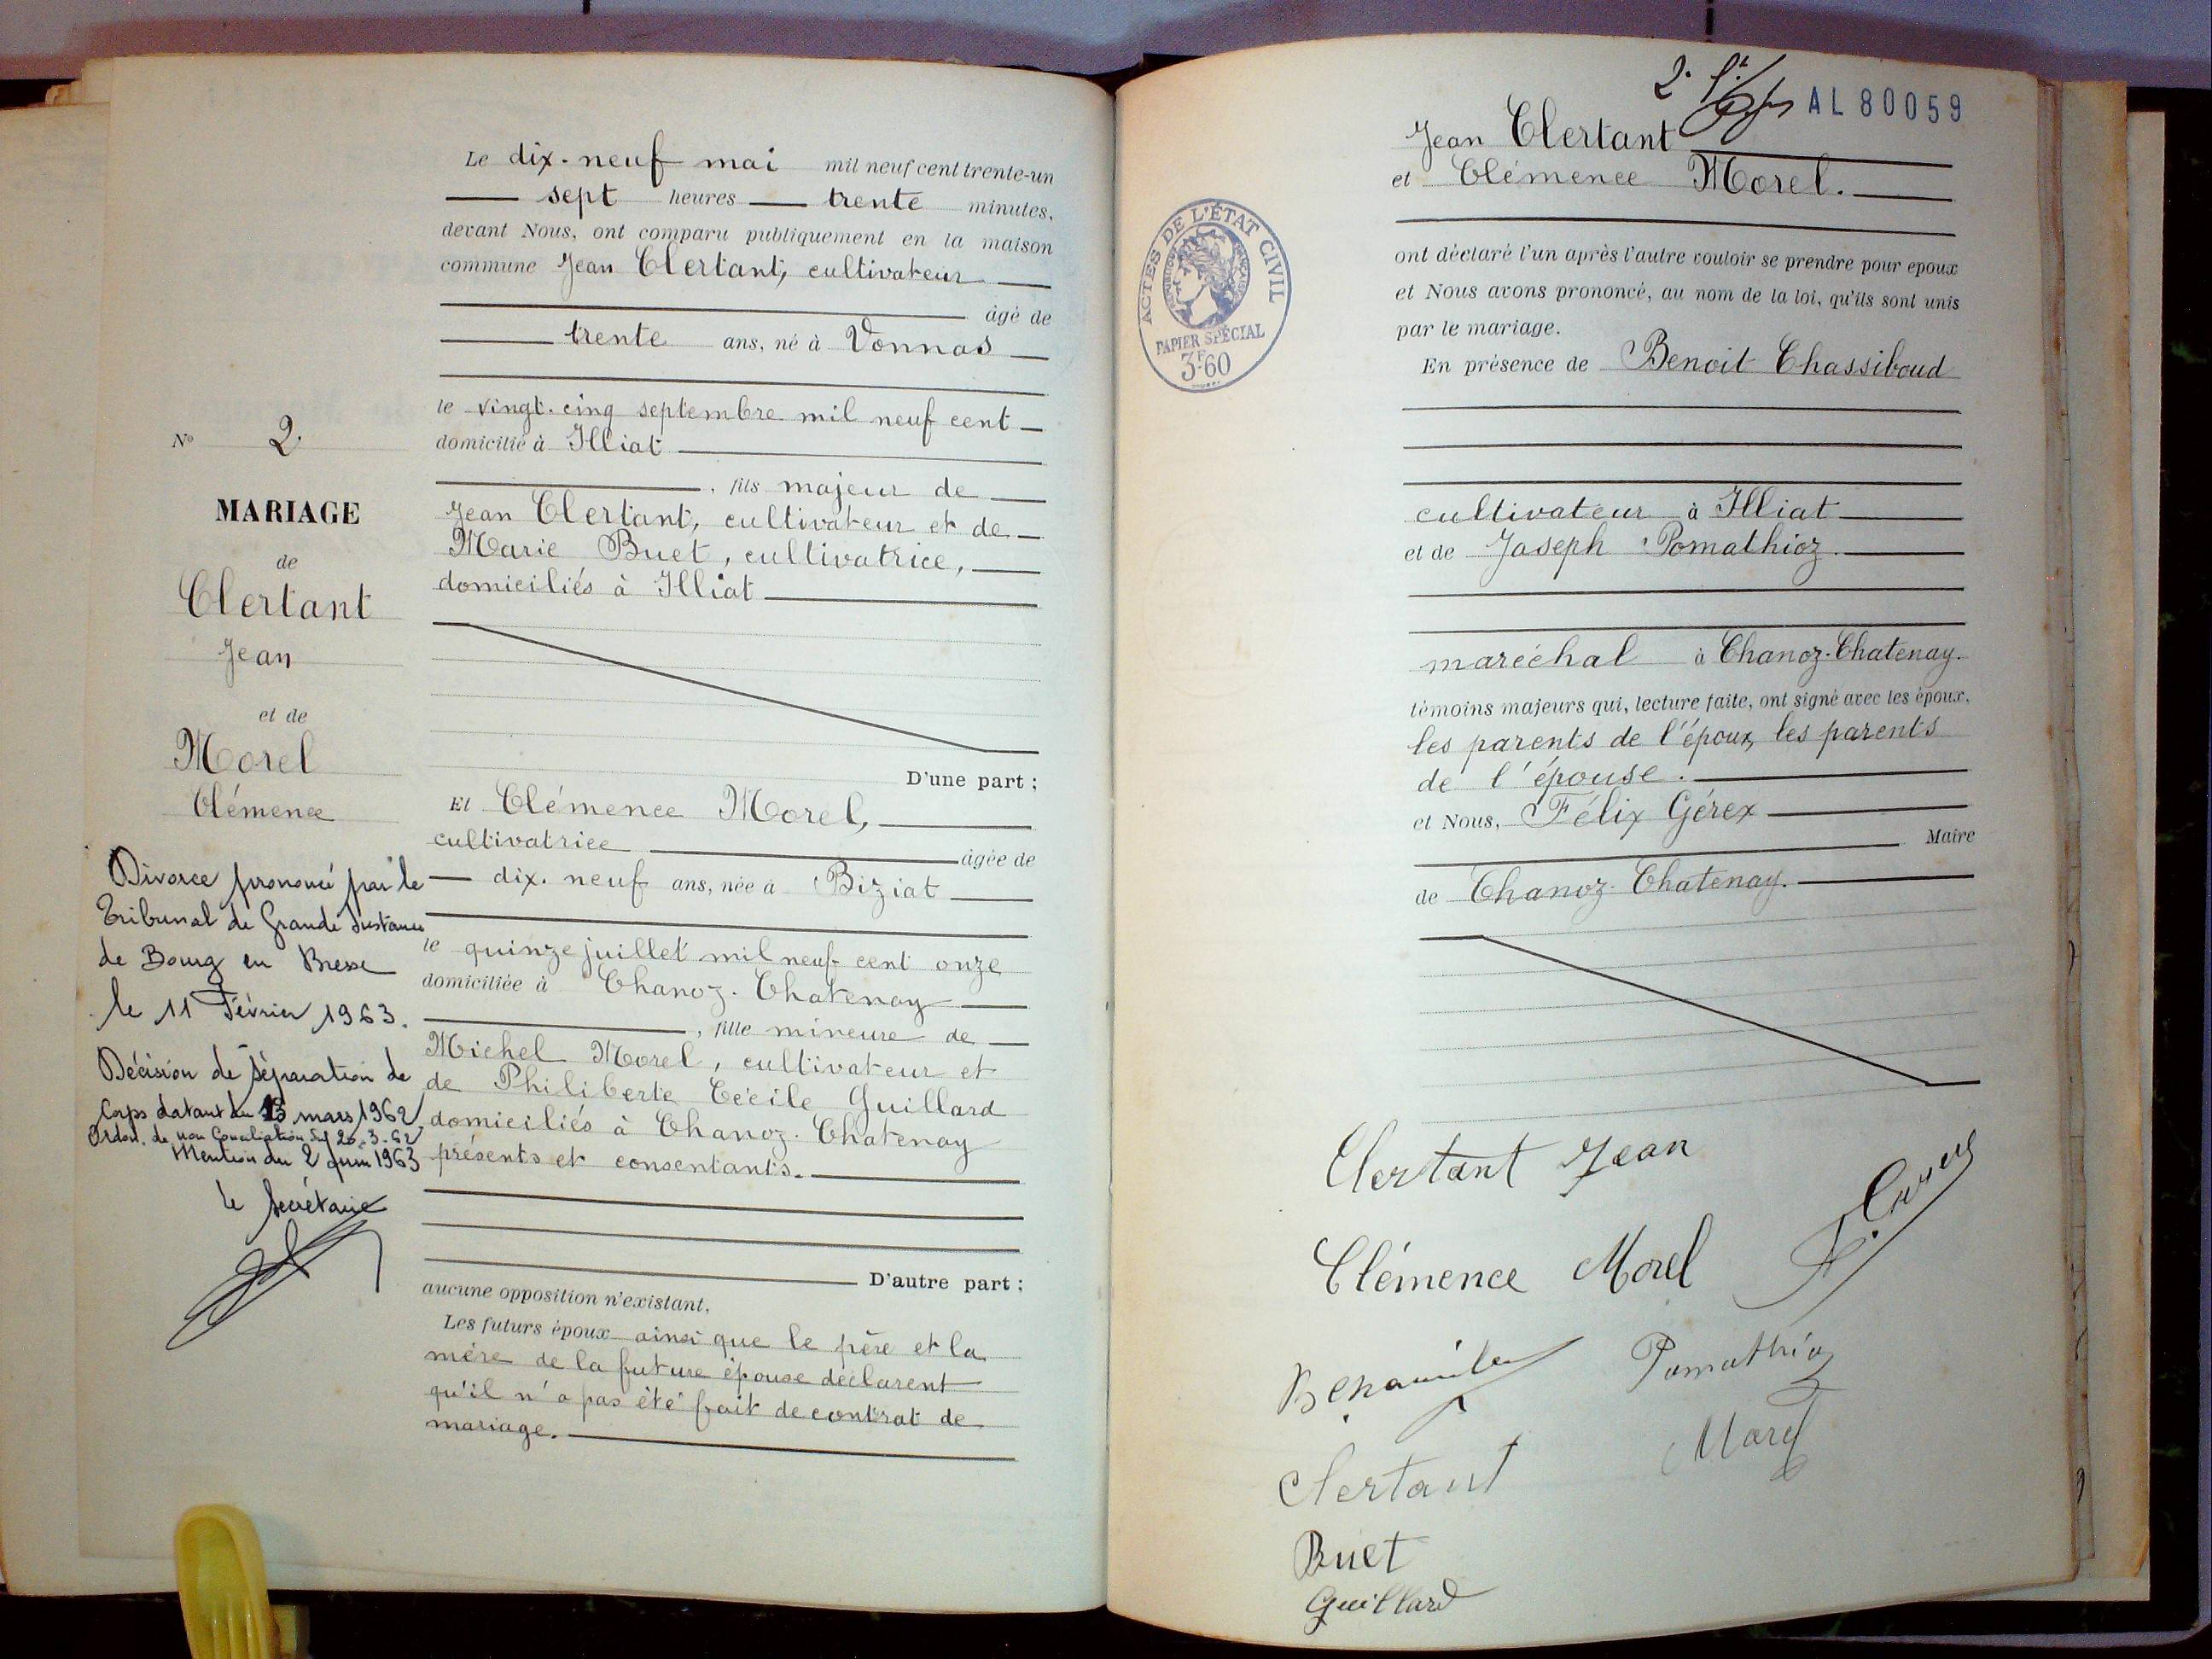 N° 2.
MARIAGE
de
Clertant
Jean
et de
Morel
Clémence
Divorce prononcé par le
Tribunal de Grande Instance
de Bourg en Bresse
le 11 Février 1963.
Décision de séparation de
Corps datant du 13 mars 1962
Ordon. de non Conciliation du 20.3.62
Mention du 2 Juin 1963
le Secrétaire
Le dix-neuf mai mil neuf cent trente-un
sept heures trente minutes,
devant Nous, ont comparu publiquement en la maison
commune Jean Clertant, cultivateur
âgé de
trente ans, né à Vonnas
le vingt-cinq septembre mil neuf cent
domicilié à Illiat
, fils majeur de
Jean Clertant, cultivateur et de
Marie Buet, cultivatrice,
domiciliés à Illiat
D'une part ;
Et Clémence Morel,
cultivatrice âgée de
dix-neuf ans, née à Biziat
le quinze juillet mil neuf cent onze
domiciliée à Chanoz-Chatenay
, fille mineure de
Michel Morel, cultivateur et
de Philiberte Cécile Guillard
domiciliés à Chanoz-Chatenay
présents et consentants.
D'autre part ;
aucune opposition n'existant,
Les futurs époux ainsi que le père et la
mère de la future épouse déclarent
qu'il n'a pas été fait de contrat de
mariage.
AL 80059
Jean Clertant
et Clémence Morel.
ACTES DE L'ÉTAT CIVIL
PAPIER SPÉCIAL
3F60
ont déclaré l'un après l'autre vouloir se prendre pour epoux
et Nous avons prononcé, au nom de la loi, qu'ils sont unis
par le mariage.
En présence de Benoit Chassiboud
cultivateur à Illiat
et de Joseph Pomathioz
maréchal à Chanoz-Chatenay.
témoins majeurs qui, lecture faite, ont signé avec les époux,
les parents de l'époux, les parents
de l'épouse.
et Nous, Félix Gérex
Maire
de Chanoz-Chatenay.
Clertant Jean
Clémence Morel
Pomathioz
Clertant
Morel
Buet
Guillard